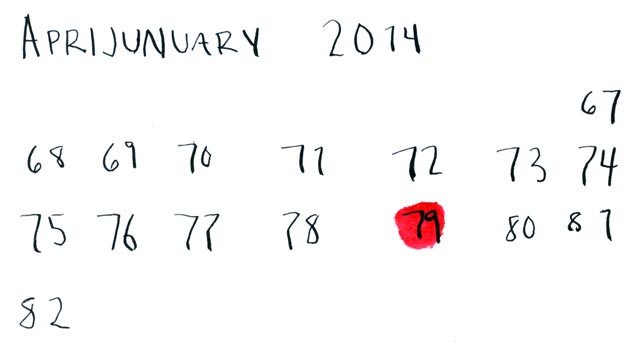 APRIJUNUARY 2014
67
68 69 70 71 72 73 74
75 76 77 78 79 80 81
82